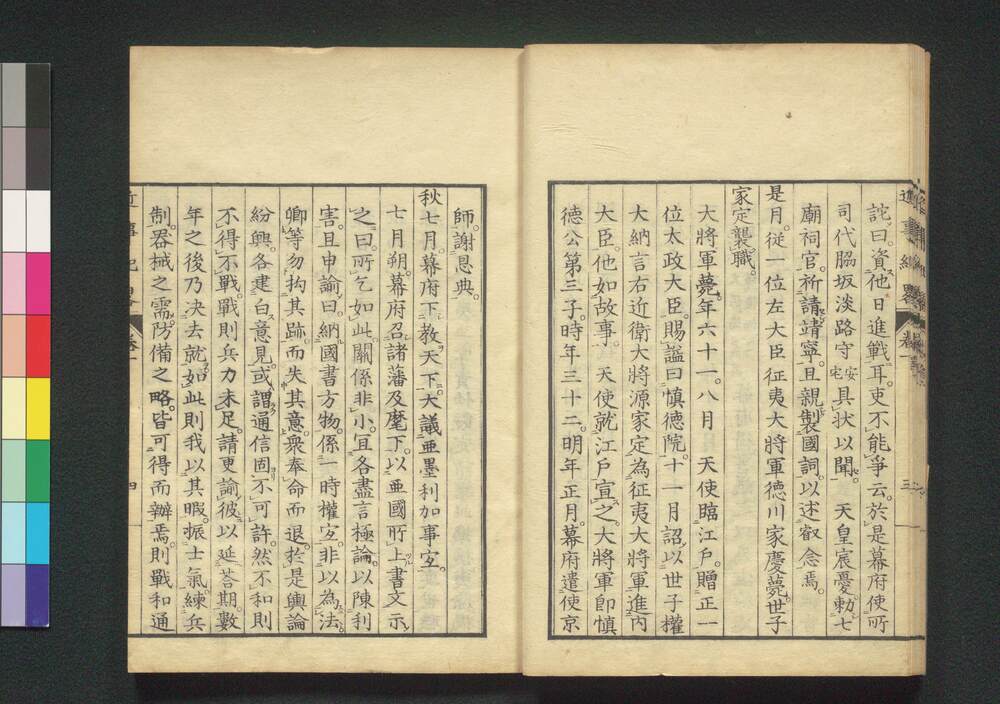 詫曰。資他日進戰耳。吏不能爭云。於是幕府使所
司代脇坂淡路守安宅具狀以聞。 天皇宸憂。勅七
廟祠官。祈請靖寧。且親製國詞。以述叡念焉。
是月。從一位左大臣征夷大將軍德川家慶薨。世子
家定襲職。
大將軍薨。年六十一。八月 天使臨江戶。贈正一
位太政大臣。賜謚曰愼德院。十一月詔以世子權
大納言右近衛大將源家定為征夷大將軍。進內
大臣。他如故事。 天使就江戶宣之。大將軍卽愼
德公第三子。時年三十二。明年正月。幕府遣使京
師。謝恩典。
秋七月。幕府下教天下。大議亜墨利加事宜。
七月朔。幕府召諸藩及麾下。以亜國所上書文示
之曰。所乞如此。關係非小。宜各盡言極論。以陳利
害。且申諭曰。納國書方物。係一時權宜。非以為法。
卿等勿拘其跡。而失其意。衆奉命而退。於是輿論
紛興。各建白意見。或謂通信固不可許。然不和則
不得不戰。戰則兵力未足。請更諭彼以延荅期。數
年之後乃決去就。如此則我以其暇。振士氣練兵
制。器械之需。防備之略。皆可得而辦焉。則戰和通
卷一
三
四